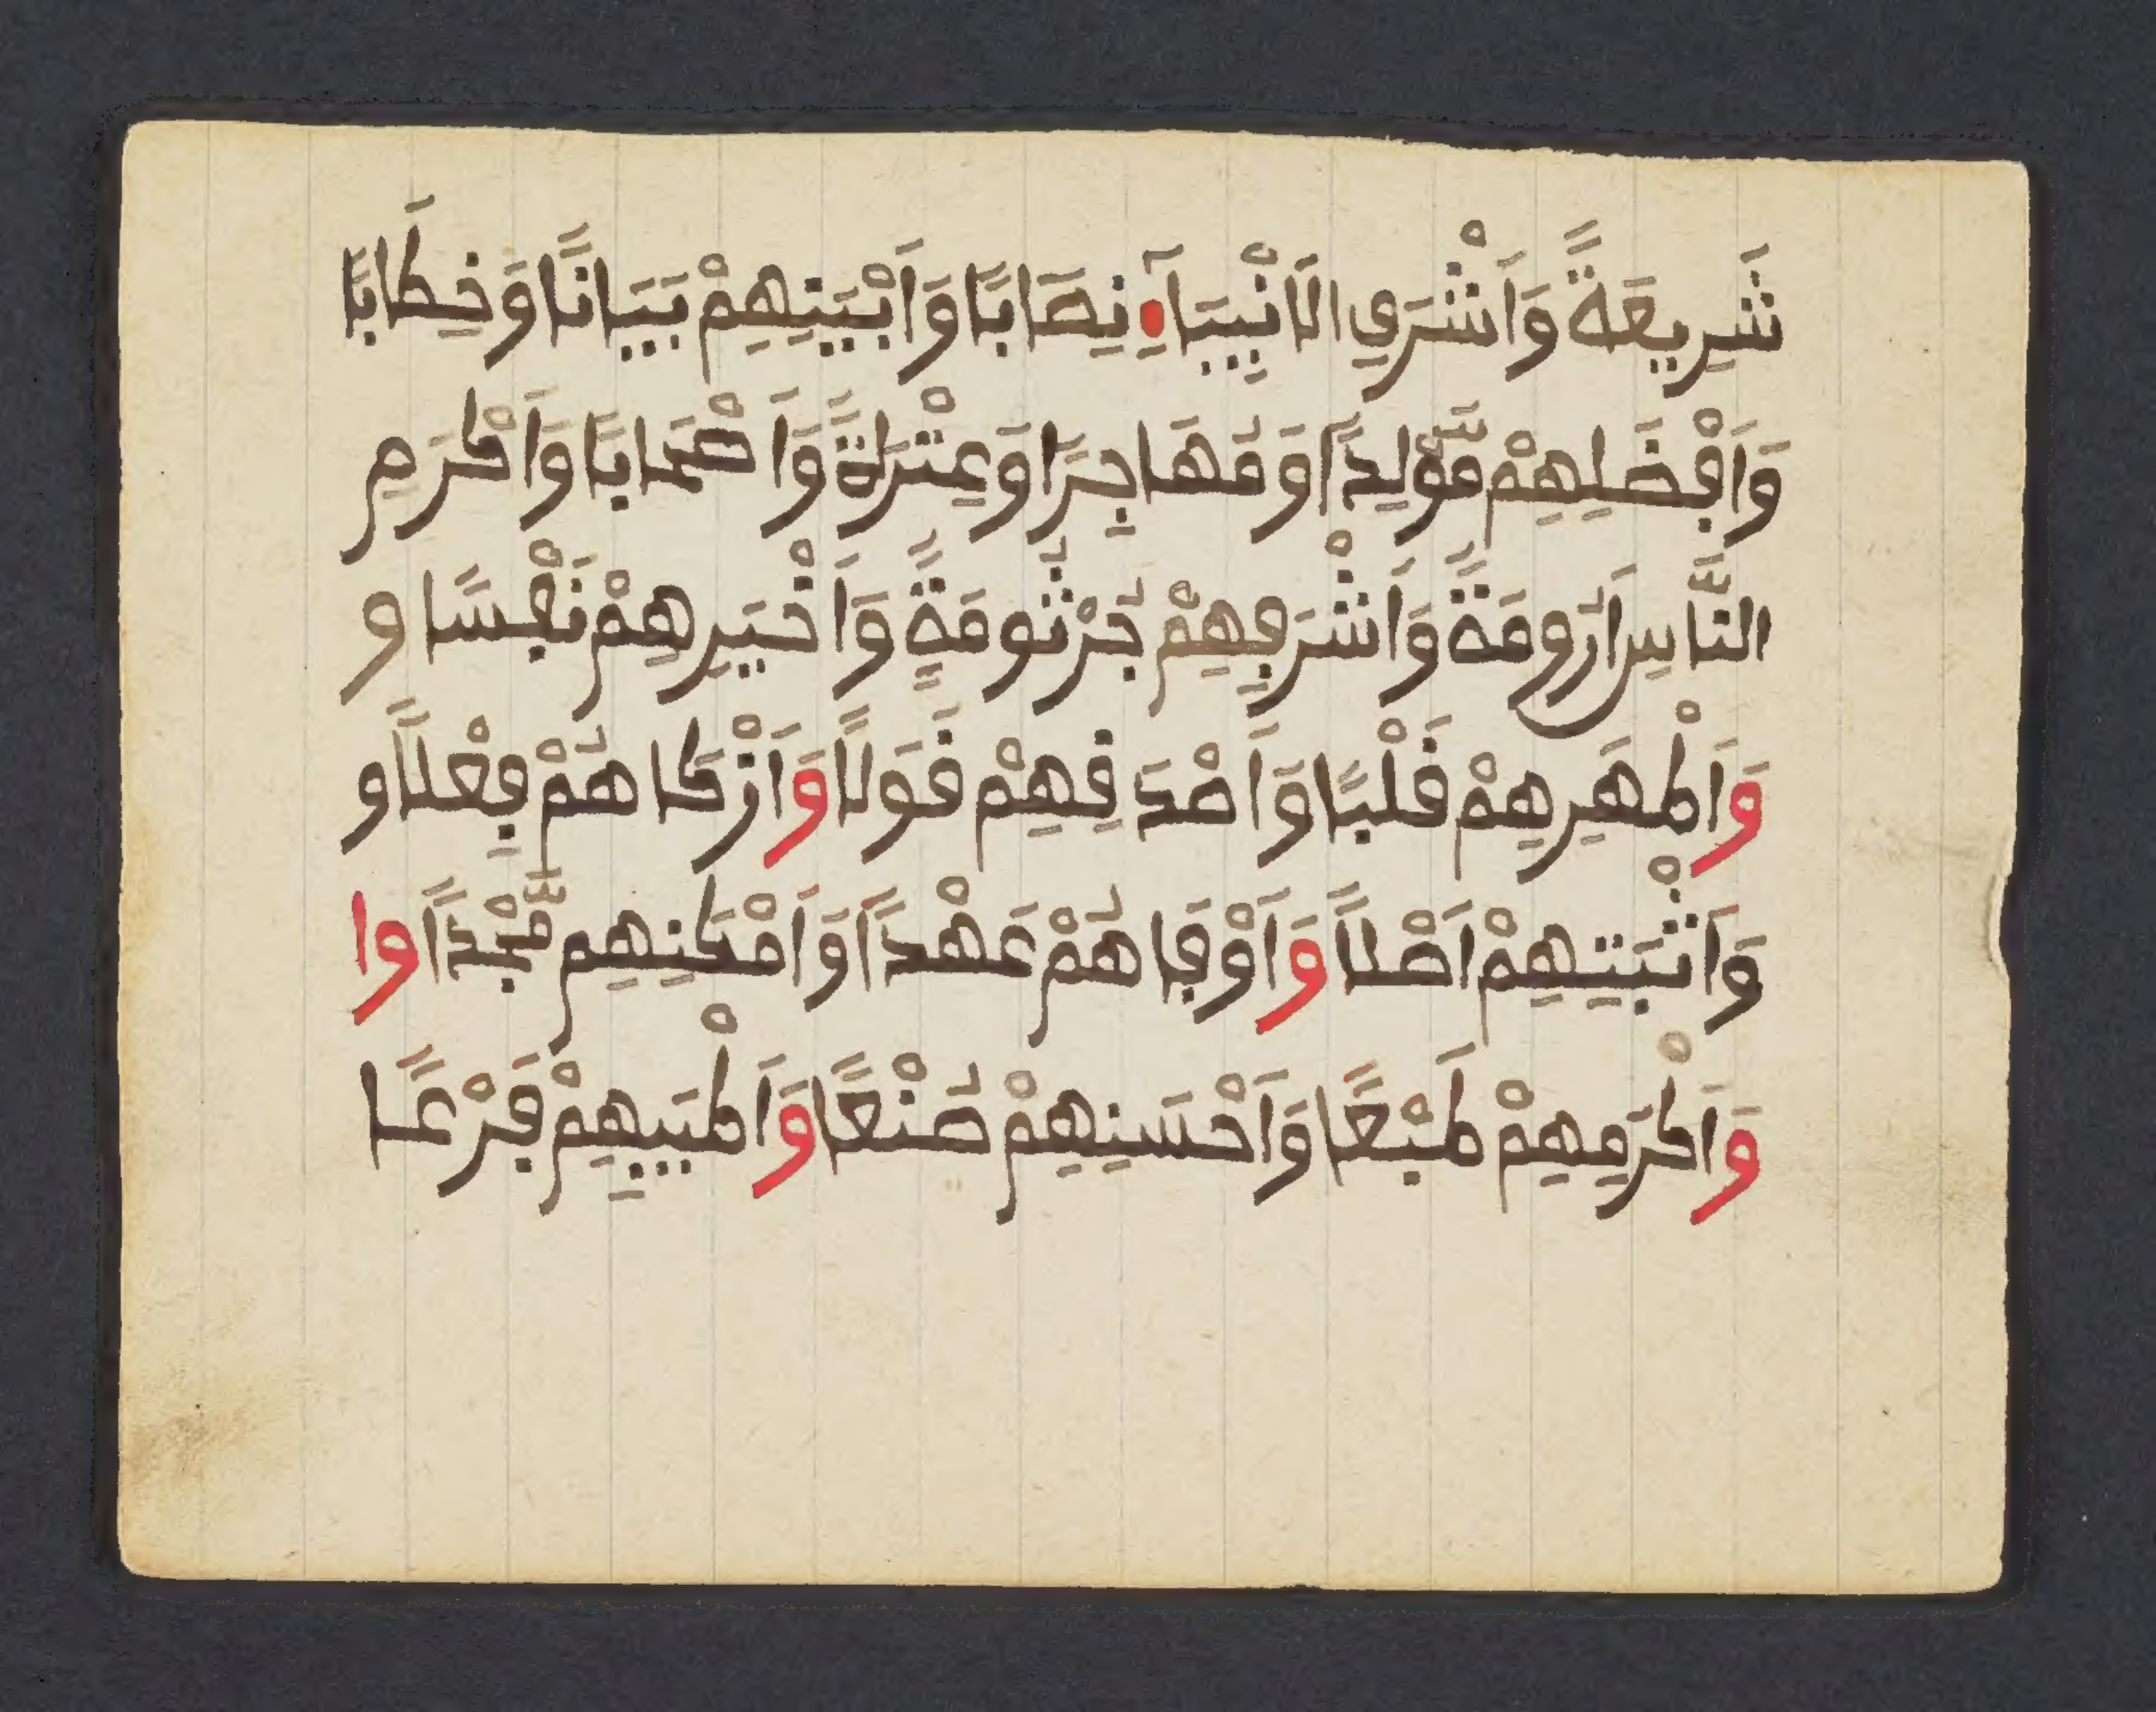 شَرِيعَةً وَأَشْرَفِ الَانْبِيَآءِ نِصَابًا وَأَبْيَنِهِمْ بَيَانًا وَخِطَابًا
وَأَفْضَلِهِمْ مَّوْلِدًا وَمُهَاجِرًا وَعِتْرَةً وَأَصْحَابًا وَأَكْرَمِ
النَّاسِ أَرُومَةً وَأَشْرَفِهِمْ جُرْثُومَةً وَأَخْيَرِهِمْ نَفْسًا و
وَأَطْهَرِهِمْ قَلْبًا وَأَصْدَقِهِمْ قَوَلًا وَأَزْكَاهُمْ فِعْلًا و
وَأَثْبَتِهِمْ أَصْلًا وَأَوْفَاهُمْ عَهْدًا وَأَمْكَنِهِم مَّجْدًا وا
وَأَكْرَمِهِمْ طَبْعًا وَأَحْسَنِهِمْ صُنْعًا وَأَطْيَبِهِمْ فَرْعًا